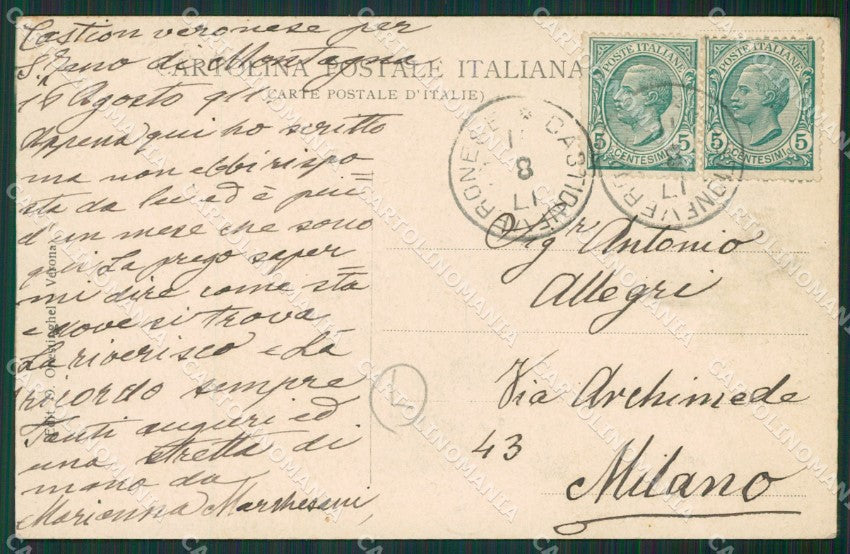 Castion veronese per
S. Zeno di Montagna
16 Agosto 911
Appena qui ho scritto
ma non ebbi rispo
sta da lei ed è piú
d'un mese che sono
qui La prego saper
mi dire come sta
e dove si trova
La riverisco e La
ricordo sempre
Tanti auguri ed
una stretta di
mano da
Marianna Marchesini
CARTOLINA POSTALE ITALIANA
(CARTE POSTALE D'ITALIE)
POSTE ITALIANE
5 CENTESIMI 5
POSTE ITALIANE
5 CENTESIMI 5
CASTIONE VERONESE
11
8
17
CASTIONE VERONESE
11
8
17
Sigr Antonio
Allegri
Via Archimede
43
Milano
Verona
CARTOLINOMANIA